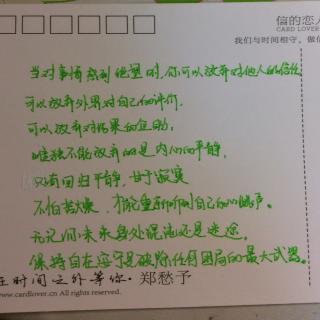 信的恋人
CARD LOVER
我们与时间相守，做信
当对事情感到绝望时，你可以放弃对他人的信任
可以放弃外界对自己的评价，
可以放弃对结果的企盼，
唯独不能放弃的是内心的平静，
只有回归平静，甘于寂寞
不怕苦燥，才能重新听到自己的心跳声。
无论间未来身处混沌还是迷途，
保持自在安宁是破除任何困局的最大武器。
在时间之外等你·郑愁予
www.cardlover.cn All rights reserved.